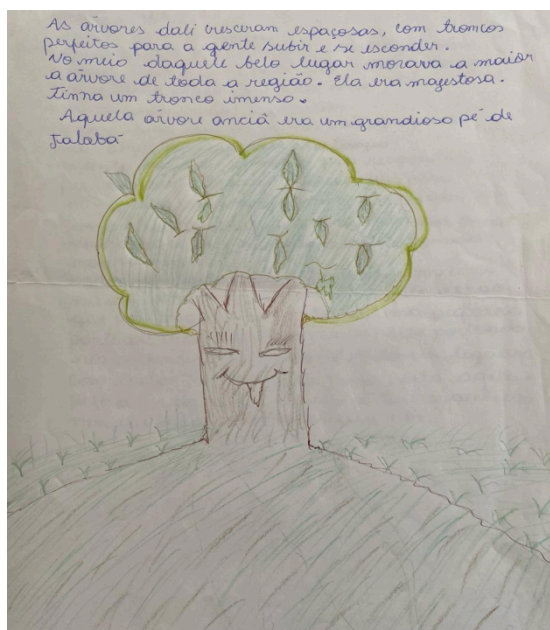 As árvores dali cresceram espaçosas, com troncos
perfeitos para a gente subir e se esconder.
No meio daquele belo lugar morava a maior
a árvore de toda a região. Ela era majestosa.
Tinha um tronco imenso.
Aquela árvore anciã era um grandioso pé de
Jalabá